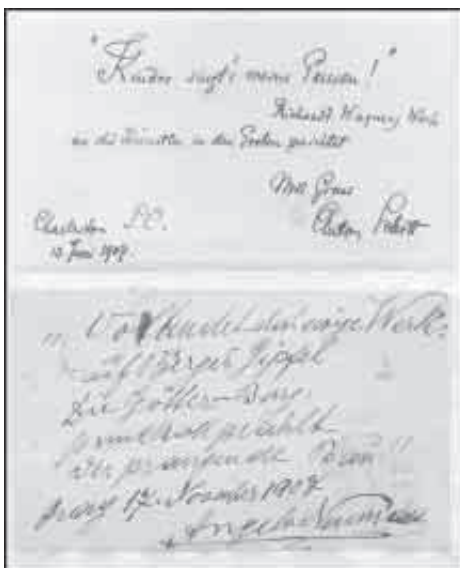 "Kinder singt's meine Pausen!"
Richard Wagners
an die Künstler in den Proben gerichtet
Mit Gruss
Charleston S.C. Anton Schott
10 Juni 1907.
„Vollendet das ewige Werk:
auf Berges Gipfel
die Götter-Burg
prunkvoll prahlt
der prangende Bau!"
Prag 17. November 1907
Angelo Neumann